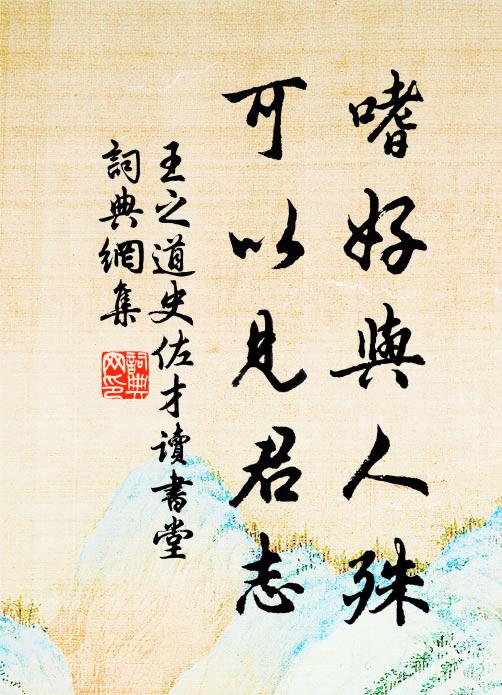 嗜好與人殊
可以見君志
王之道史佐才讀書堂
詞典網集
詞典
网印